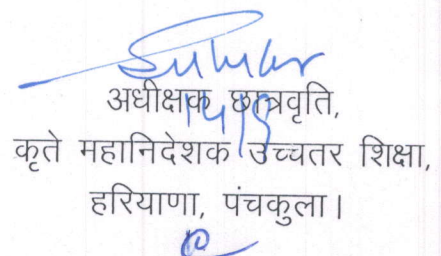 अधीक्षक छात्रवृति,
14/5
कृते महानिदेशक उच्चतर शिक्षा,
हरियाणा, पंचकुला।